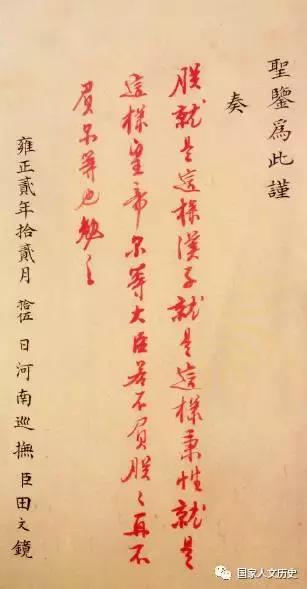 聖鑒爲此謹
奏
朕就是這樣漢子就是這樣秉性就是
這樣皇帝尔等大臣若不負朕〻再不
負尔等也勉之
雍正貳年拾貳月拾伍日河南巡撫臣田文鏡
国家人文历史